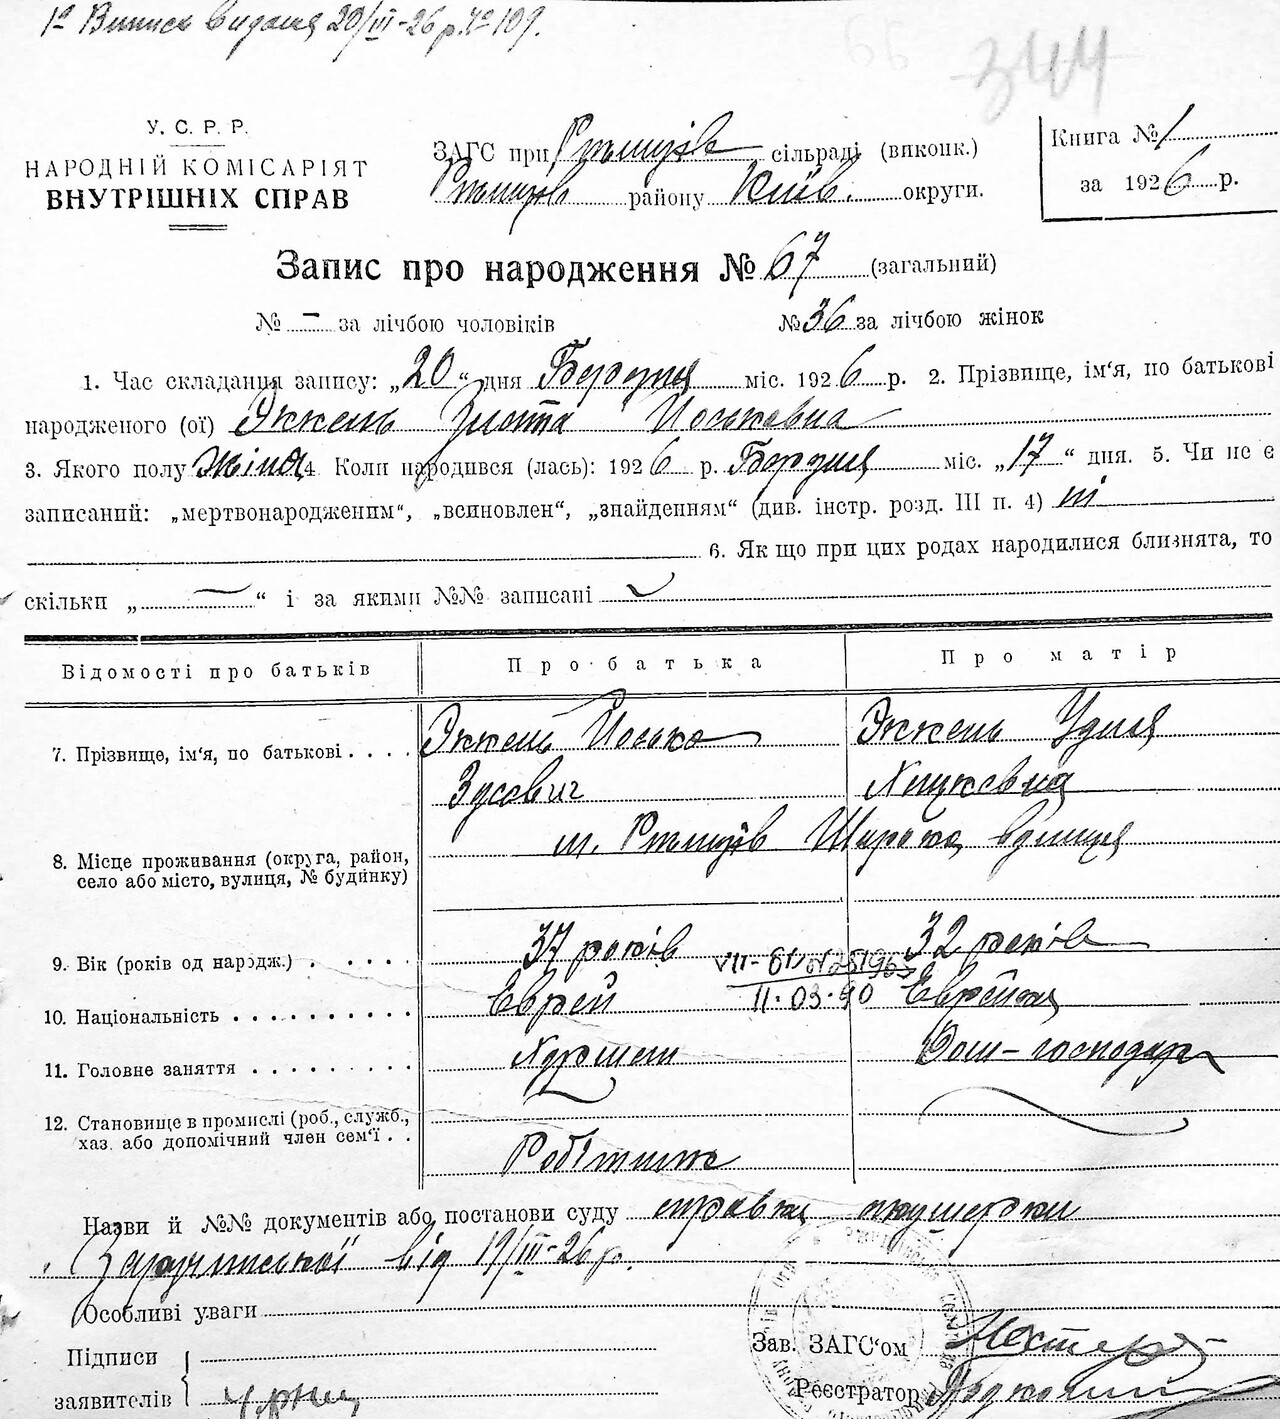 1ª Витись видана 20/III-26 р. № 109.
344
У. С. Р. Р.
НАРОДНІЙ КОМІСАРІЯТ
ВНУТРІШНІХ СПРАВ
ЗАГС при Ржищів сільраді (виконк.)
Ржищів району Київ. округи.
Книга № 1
за 1926 р.
Запис про народження № 67 (загальний)
№ - за лічбою чоловіків № 36 за лічбою жінок
1. Час складання запису: „20“ дня Березня міс. 1926 р. 2. Прізвище, ім‘я, по батькові
народженого (ої) Эккель Злота Йоськовна
3. Якого полу жіноч 4. Коли народився (лась): 1926 р. Березня міс. „17“ дня. 5. Чи не є
записаний: „мертвонародженим“, „всиновлен“, „знайденням“ (див. інстр. розд. III п. 4) ні
6. Як що при цих родах народилися близнята, то
скільки „ — “ і за якими №№ записані
Відомості про батьків Про батька Про матір
7. Прізвище, ім‘я, по батькові . . . . Эккель Йосько Эккель Удля
Зусович Хацковна
8. Місце проживання (округа, район, село або місто, вулиця, № будинку) м. Ржищів Широка вулиця
9. Вік (років од народж.) . . . . . 37 років 32 років
11-03-90
10. Національність . . . . . . . . . . Еврей Еврейка
11. Головне заняття . . . . . . . . . Дом-господарка
12. Становище в промислі (роб., служб., хаз. або допомічний член сем‘ї . .
Робітник
Назви й №№ документів або постанови суду справка акушерки
від 19/III-26 р.
Особливі уваги
Підписи
заявителів
Зав. ЗАГС‘ом
Реєстратор